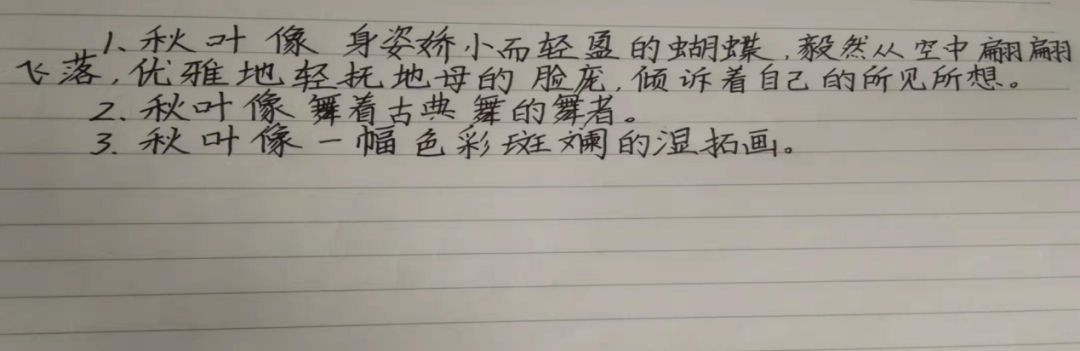 1、秋叶像身姿娇小而轻盈的蝴蝶,毅然从空中翩翩
飞落,优雅地轻抚地母的脸庞,倾诉着自己的所见所想。
2、秋叶像舞着古典舞的舞者。
3、秋叶像一幅色彩斑斓的湿拓画。